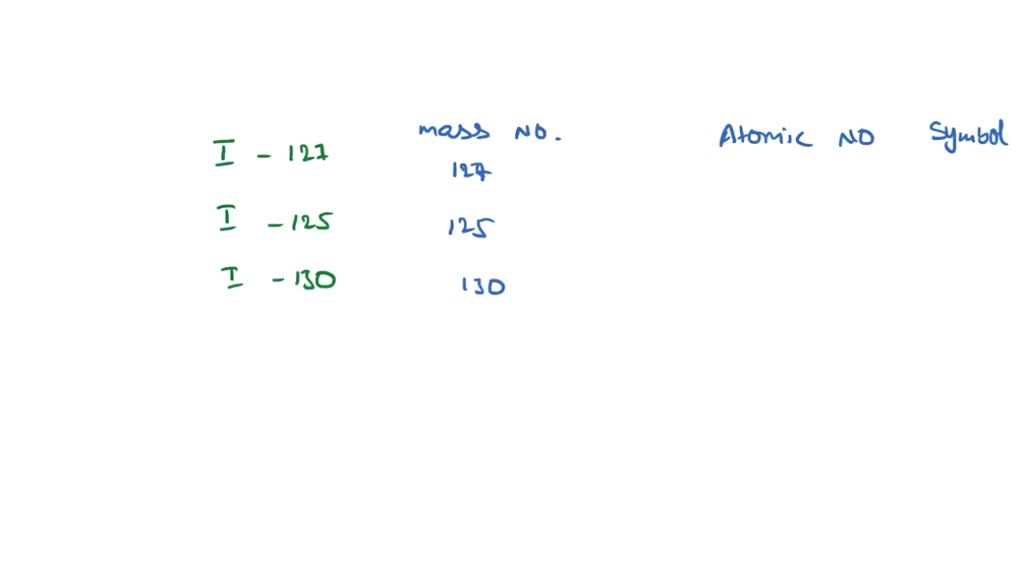 mass No. Atomic No Symbol
I - 127 127
I - 125 125
I - 130 130